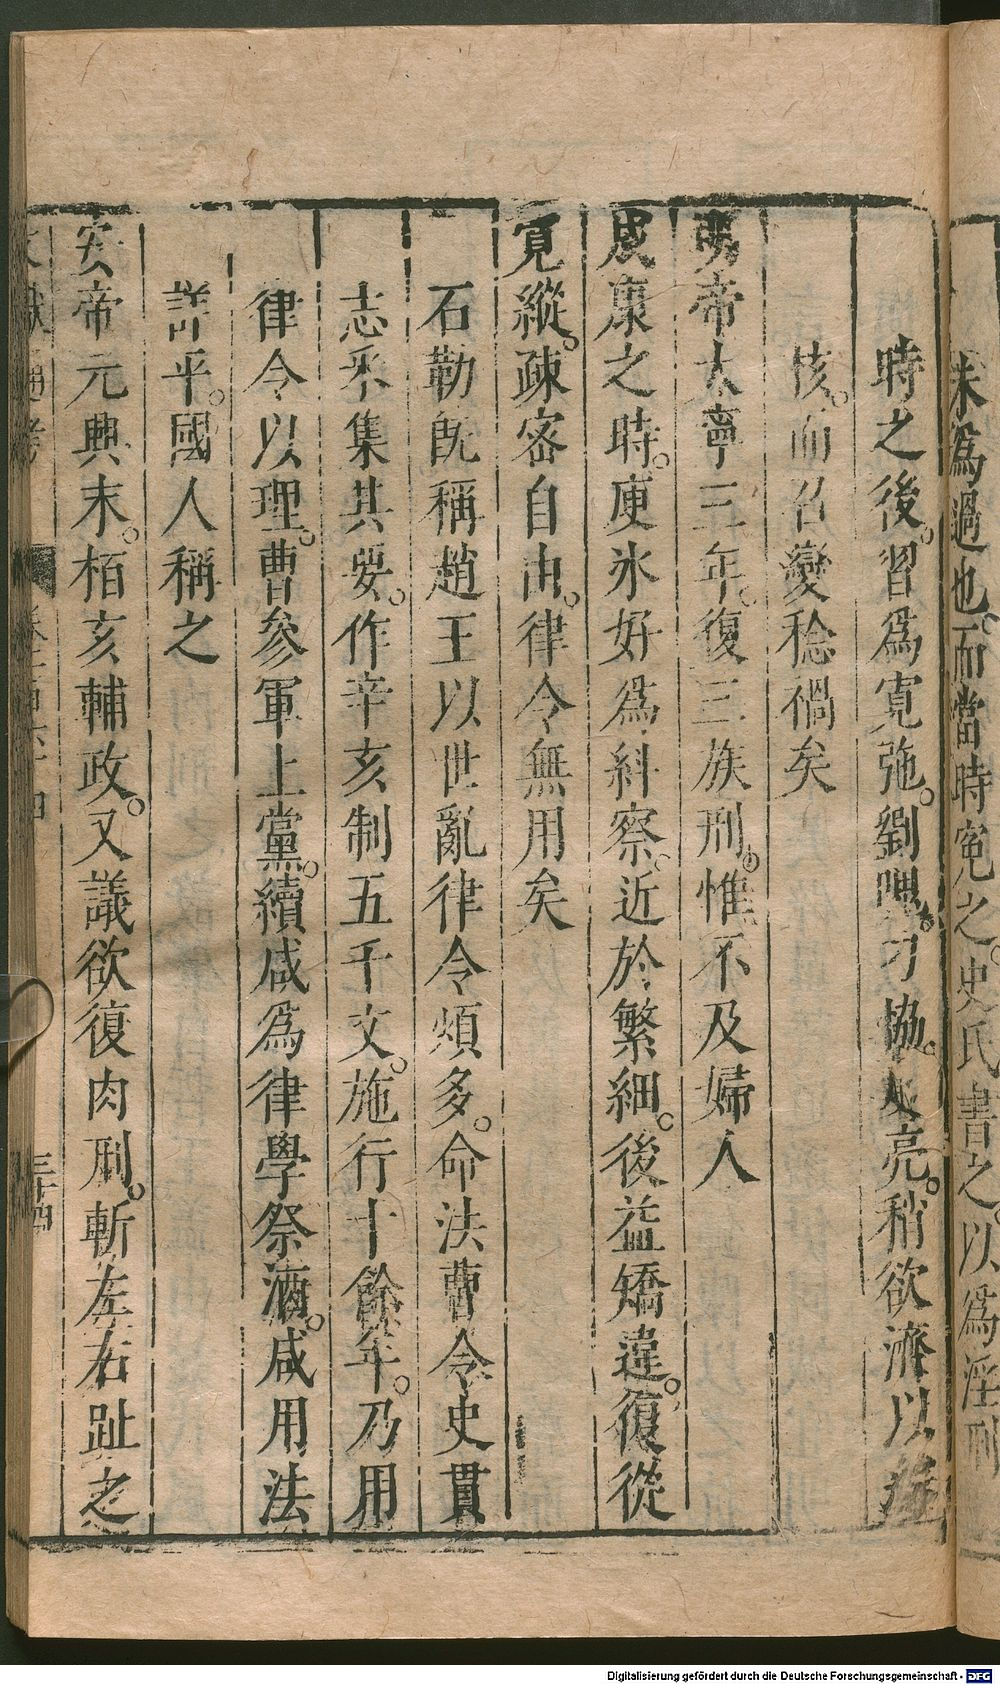 朱爲過也。而當時寃之。史氏書之。以爲淫刑
時之後。習爲寬弛。劉隗。刁協。庾亮。稍欲濟以
核。而召變稔禍矣
明帝太寧三年。復三族刑。惟不及婦人
成康之時。庾氷好爲糾察。近於繁細。後益矯違。復從
寬縱。疎密自由。律令無用矣
石勒旣稱趙王以世亂律令煩多。命法曹令史貫
志采集其要。作辛亥制五千文。施行十餘年。乃用
律令以理。曹參軍上黨。續咸爲律學祭酒。咸用法
詳平。國人稱之
安帝元興末。桓亥輔政。又議欲復肉刑。斬左右趾之
文獻通考
三十四
Digitalisierung gefördert durch die Deutsche Forschungsgemeinschaft - DFG